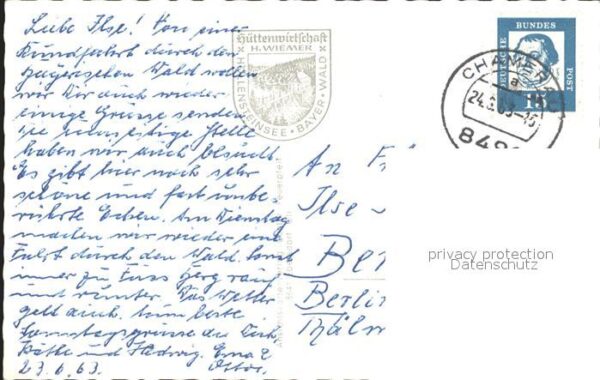 Liebe Ilse! Von einer
Rundfahrt durch den
Bayerischen Wald wollen
wir Dir auch wieder
einige Grüsse senden
die Stelle
haben wir auch besucht.
Es gibt hier noch sehr
schöne und fast unbe-
rührte Ecken. Am Dienstag
machen wir wieder eine
Fahrt durch den Wald. Sonst
immer zu Fuss Berg rauf
und runter. Das Wetter
geht auch.
Sonntagsgrüsse
Käthe und Hedwig, Erna
23.6.63.
Hüttenwirtschaft
H. WIEMER
HÖLLENSTEINSEE • BAYER. WALD
DEUTSCHE BUNDESPOST
15
CHAMER
a
24.6.63-15
An
Ilse
Ber
Berlin
privacy protection
Datenschutz